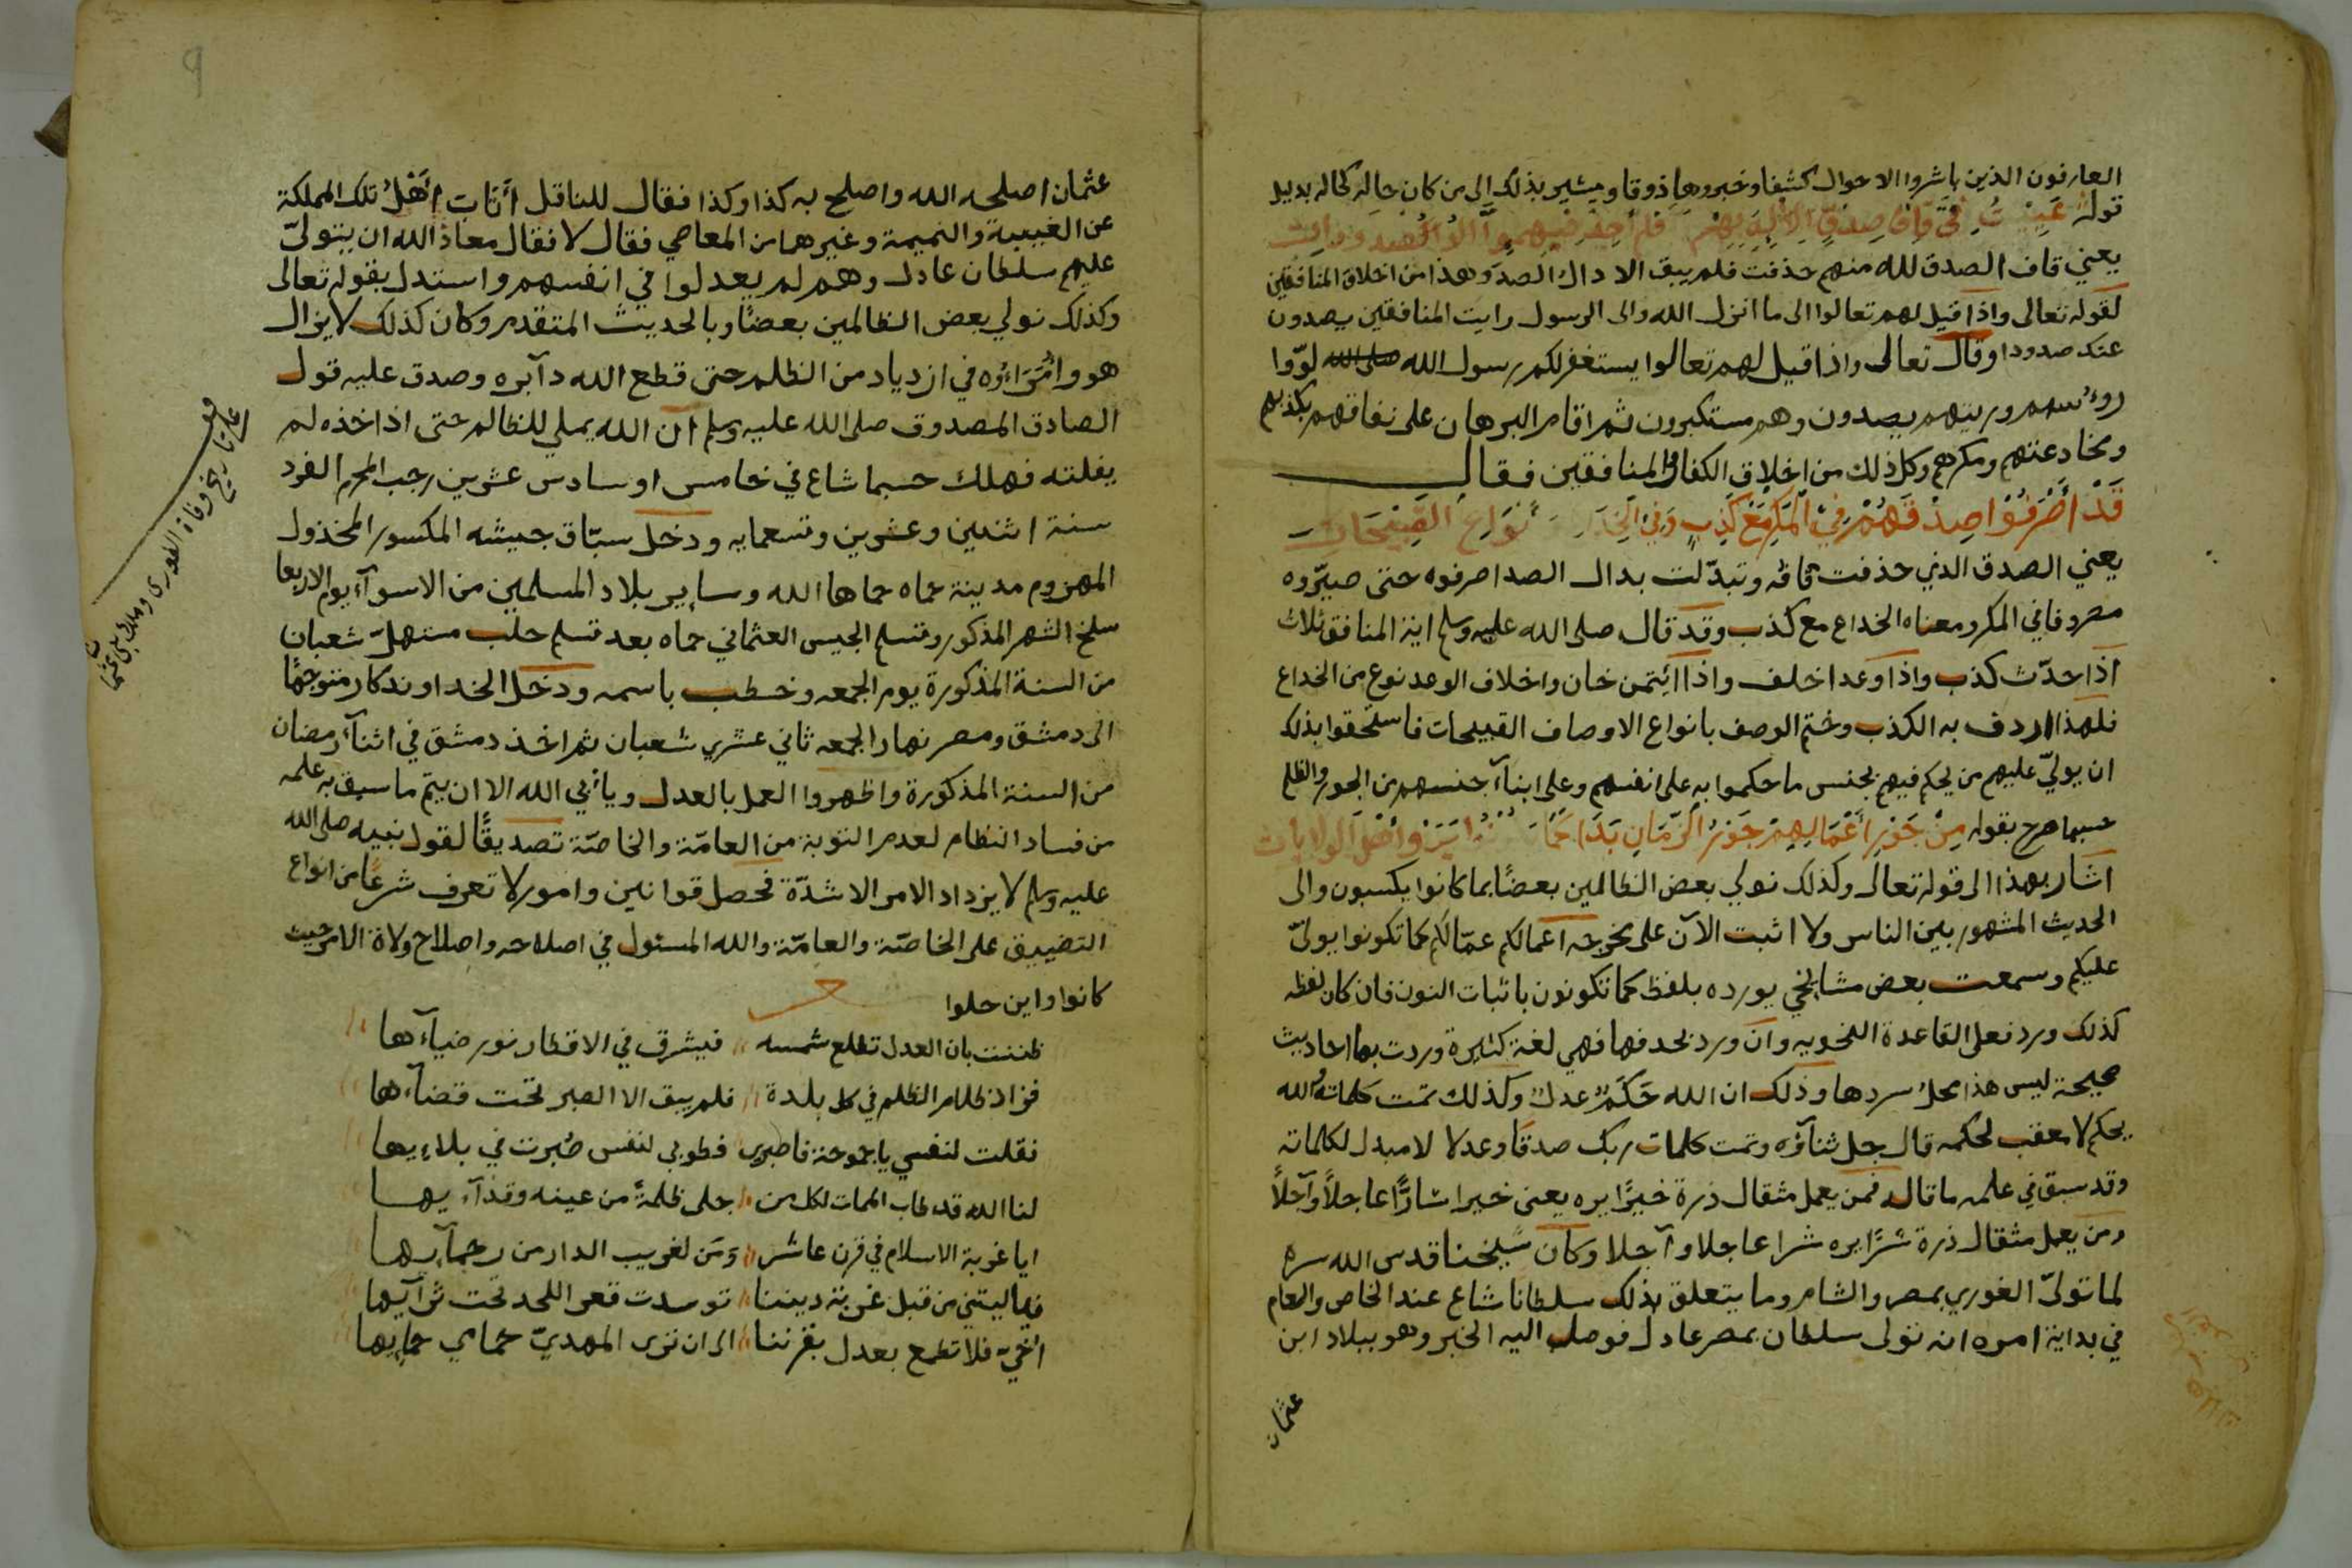 العارفون الذين باشروا الاحوال كشفا وخبروها ذوقا ويشير بذلك الى من كان حاله كحاله بدليل
قوله
يعني قاف الصدق لله منهم حذفت فلم يبق الا دال الصد وهذا من اخلاق المنافقين
لقوله تعالى واذا قيل لهم تعالوا الى ما انزل الله والى الرسول رايت المنافقين يصدون
عنك صدودا وقال تعالى واذا قيل لهم تعالوا يستغفر لكم رسول الله صلى الله لوّوا
رؤسهم ورايتهم يصدون وهم مستكبرون ثم اقام البرهان على نفاقهم بكذبهم
ومخادعتهم ومكرهم وكل ذلك من اخلاق الكفار والمنافقين فقال
قَدْ أَصْرَفُوا صِدْقَهُمْ فِي الْمَكْرِ مَعْ كَذِبٍ وَفِي أنْوَاعِ القَبِيْحَاتِ
يعني الصدق الذي حذفت قافه وتبدّلت بدال الصد اصرفوه حتى صيّروه
مصروفا في المكر ومعناه الخداع مع كذب وقد قال صلى الله عليه وسلم اية المنافق ثلاث
اذا حدّث كذب واذا وعد اخلف واذا ائتمن خان واخلاف الوعد نوع من الخداع
فلهذا اردف به الكذب وختم الوصف بانواع الاوصاف القبيحات فاستحقوا بذلك
ان يولّي عليهم من يحكم فيهم بجنس ما حكموا به على انفسهم وعلى ابنآء جنسهم من الجور والظلم
حسبما صرح بقوله مِنْ جَوْرِ أَعْمَالِهِمْ جَوْرُ الزَّمَانِ بَدَا أهْلَ الولايات
اشار بهذا الى قوله تعالى وكذلك نولي بعض الظالمين بعضًا بما كانوا يكسبون والى
الحديث المشهور بين الناس ولا اثبت الآن على مخرجه اعمالكم عمّالكم كما تكونوا يولّى
عليكم وسمعت بعض مشايخي يورده بلفظ كما تكونون باثبات النون فان كان لفظه
كذلك ورد فعلى القاعدة النحويه وان ورد بحدفها فهي لغة كثيرة وردت بها احاديث
صحيحة ليس هذا محل سردها وذلك ان الله حَكَمٌ عدلٌ وكذلك تمت كلماته والله
يحكم لا معقب لحكمه قال جل ثنآؤه وتمت كلمات ربك صدقا وعدلا لا مبدل لكلماته
وقد سبق في علمه ما قال فمن يعمل مثقال ذرة خيرًا يره يعنى خيرا سارًّا عاجلاً وآجلاً
ومن يعمل مثقال ذرة شرًا يره شرا عاجلا وآجلا وكان شيخنا قدس الله سره
لما تولّى الغوري بمصر والشام وما يتعلق بذلك سلطانا شاع عند الخاص والعام
في بداية امره انه تولى سلطان بمصر عادل فوصل اليه الخبر وهو ببلاد ابن
عثمان
عثمان اصلحه الله واصلح به كذا وكذا فقال للناقل أتَابَ أهْلُ تلك المملكة
عن الغيبة والنميمة وغيرهما من المعاصي فقال لا فقال معاذ الله ان يتولّى
عليهم سلطان عادل وهم لم يعدلوا في انفسهم واستدل بقوله تعالى
وكذلك نولي بعض الظالمين بعضًا وبالحديث المتقدم وكان كذلك لا يزال
هو وامَرَاؤه في ازدياد من الظلم حتى قطع الله دآبره وصدق عليه قول
الصادق المصدوق صلى الله عليه وسلم ان الله يملي للظالم حتى اذا اخذه لم
يفلته فهلك حسبما شاع في خامس او سادس عشرين رجب المحرم الفرد
سنة اثنين وعشرين وتسعمايه ودخل سبّاق جيشه المكسور المخذول
المهزوم مدينة حماه حماها الله وساير بلاد المسلمين من الاسوآء يوم الاربعا
سلخ الشهر المذكور وتسلم الجيس العثماني حماه بعد تسلم حلب مستهلّ شعبان
من السنة المذكورة يوم الجمعه وخطب باسمه ودخل الخداوندكار متوجهًا
الى دمشق ومصر نهار الجمعه ثاني عشري شعبان ثم اخذ دمشق في اثنآء رمضان
من السنة المذكورة واظهروا العمل بالعدل ويأبي الله الا ان يتمّ ما سبق به علمه
من فساد النظام لعدم التوبة من العامّة والخاصّة تصديقًا لقول نبيه صلى الله
عليه وسلم لا يزداد الامر الا شدّة فحصل قوانين وامور لا تعرف شرعًا من انواع
التضييق على الخاصّة والعامّة والله المسئول في اصلاحه واصلاح ولاة الامر حيث
كانوا واين حلوا
ظننت بان العدل تطلع شمسه فيشرق في الاقطار نور ضيآءها
فزاد ظلام الظلم في كل بلدة فلم يبق الا الصبر تحت قضآءها
فقلت لنفسي يا جموحة فاصبري فطوبى لنفس صُبرت في بلاءيها
لنا الله قد طاب الممات لكل من جلى ظلمةً من عينه وقذآءيها
ايا غربة الاسلام في قرن عاشر وَمَن لغريب الدار من رحمآيها
فيا ليتني من قبل غربة ديننا توسدت قعر اللحد تحت ثرآيها
أخيّ فلا تطمع بعدل بقرننا الى ان نرى المهديّ حمامي حمايها
تاريخ وفاة الغورى